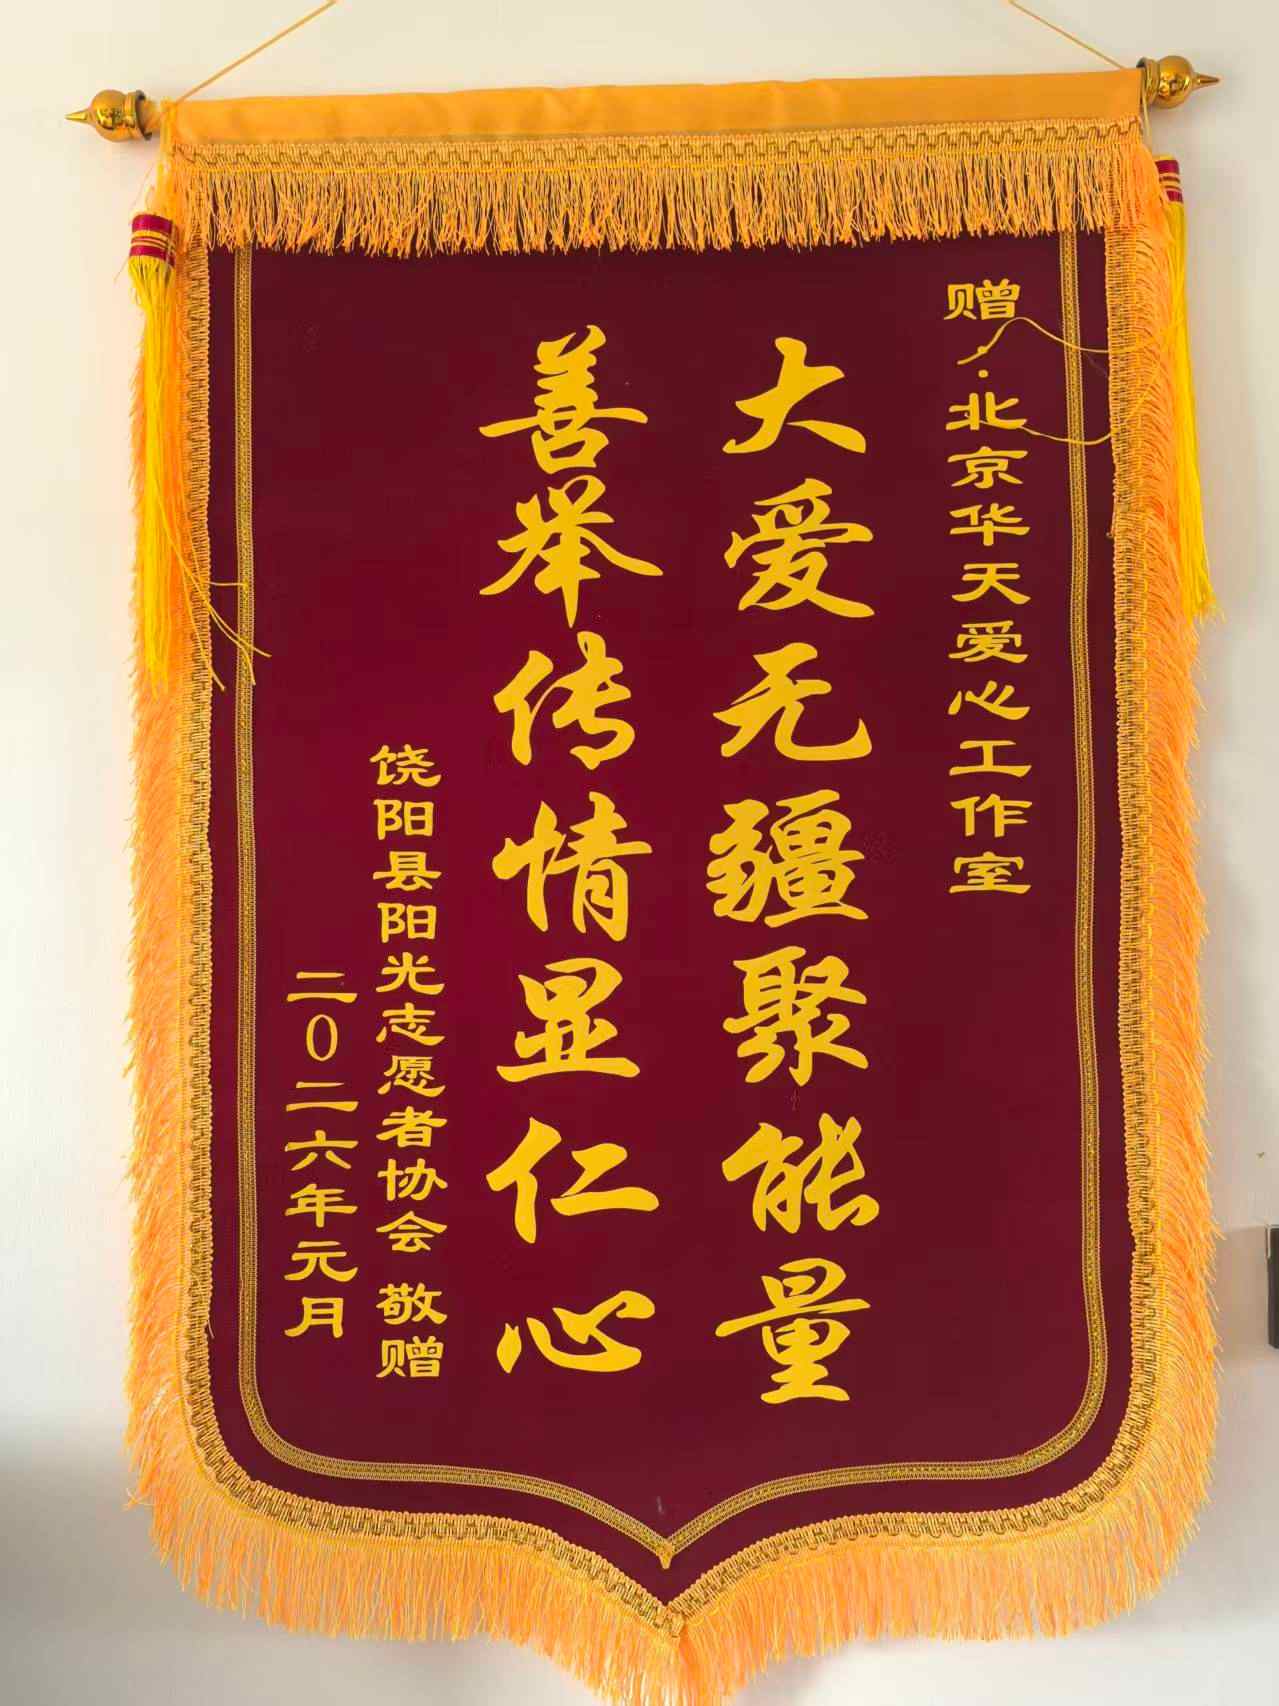 赠：北京华天爱心工作室
大爱无疆聚能量
善举传情显仁心
饶阳县阳光志愿者协会 敬赠
二0二六年元月